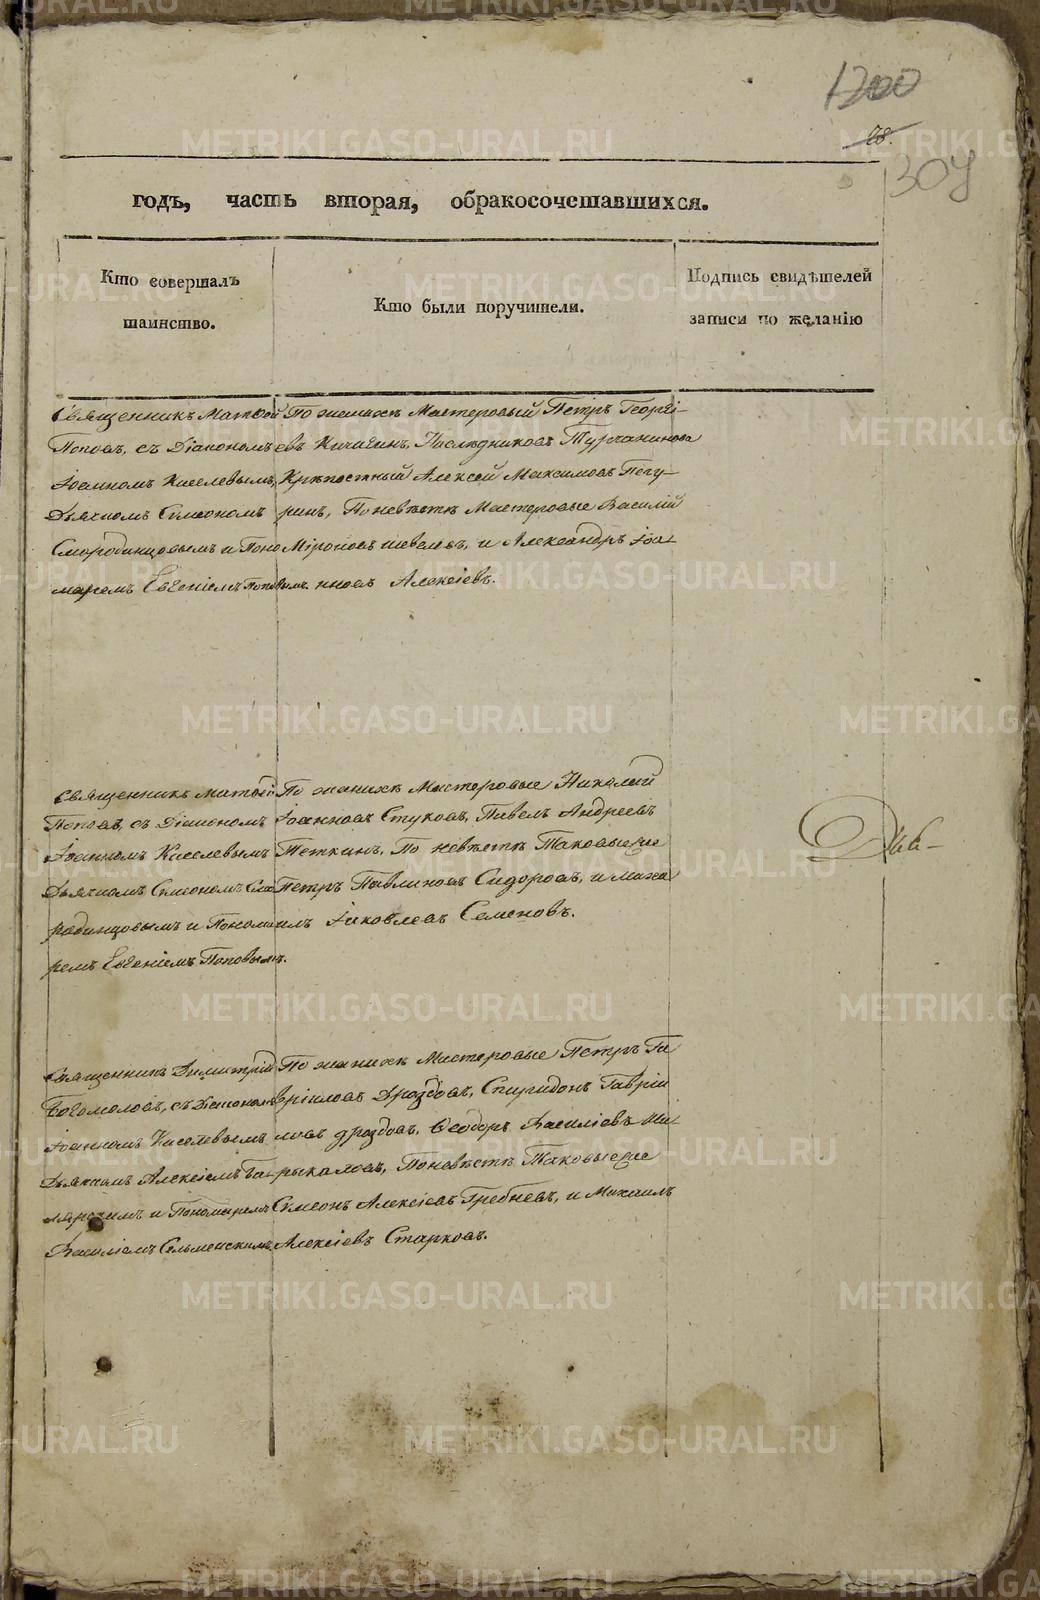 1200
28.
307
годъ, часть вторая, обракосочетавшихся.
Кто совершалъ
таинство.
Кто были поручители.
Подпись свидѣтелей
записи по желанію
Священникъ Матөей
Поповъ, съ Діакономъ
Іоанномъ Киселевымъ,
Дьячкомъ Симеономъ
Смородинцовымъ и Поно
маремъ Евгеніемъ Поповымъ.
По женихѣ Мастеровый Петръ Георгі-
евъ Кичигинъ, Наслѣдниковъ Турчанинова
Крѣпостный Алексей Максимовъ Пегу-
ринъ, По невѣстѣ Мастеровые Василій
Міроновъ Шевелевъ, и Александръ Іоа-
нновъ Алексіевъ.
Священникъ Матөей
Поповъ, съ Діакономъ
Іоанномъ Киселевымъ
Дьячкомъ Симеономъ Смо
родинцовымъ и Понома
ремъ Евгеніемъ Поповымъ.
По женихѣ Мастеровые Николай
Іоанновъ Стуковъ, Павелъ Андреевъ
Теткинъ, По невѣстѣ Таковые же
Петръ Павлиновъ Сидоровъ, и Миха
илъ Іаковлевъ Семеновъ.
Священникъ Димитрій
Богомоловъ, съ Діакономъ
Іоанномъ Киселевымъ
Дьячкомъ Алексіемъ
и Пономаремъ
Василіемъ Сельменскимъ.
По женихѣ Мастеровые Петръ Га
вріиловъ Дроздовъ, Спиридонъ Гавріи
ловъ Дроздовъ, Өеодоръ Василіевъ Ши
рыкаловъ, По невѣстѣ Таковые же
Симеонъ Алексіевъ Гребневъ, и Михаилъ
Алексіевъ Старковъ.
METRIKI.GASO-URAL.RU